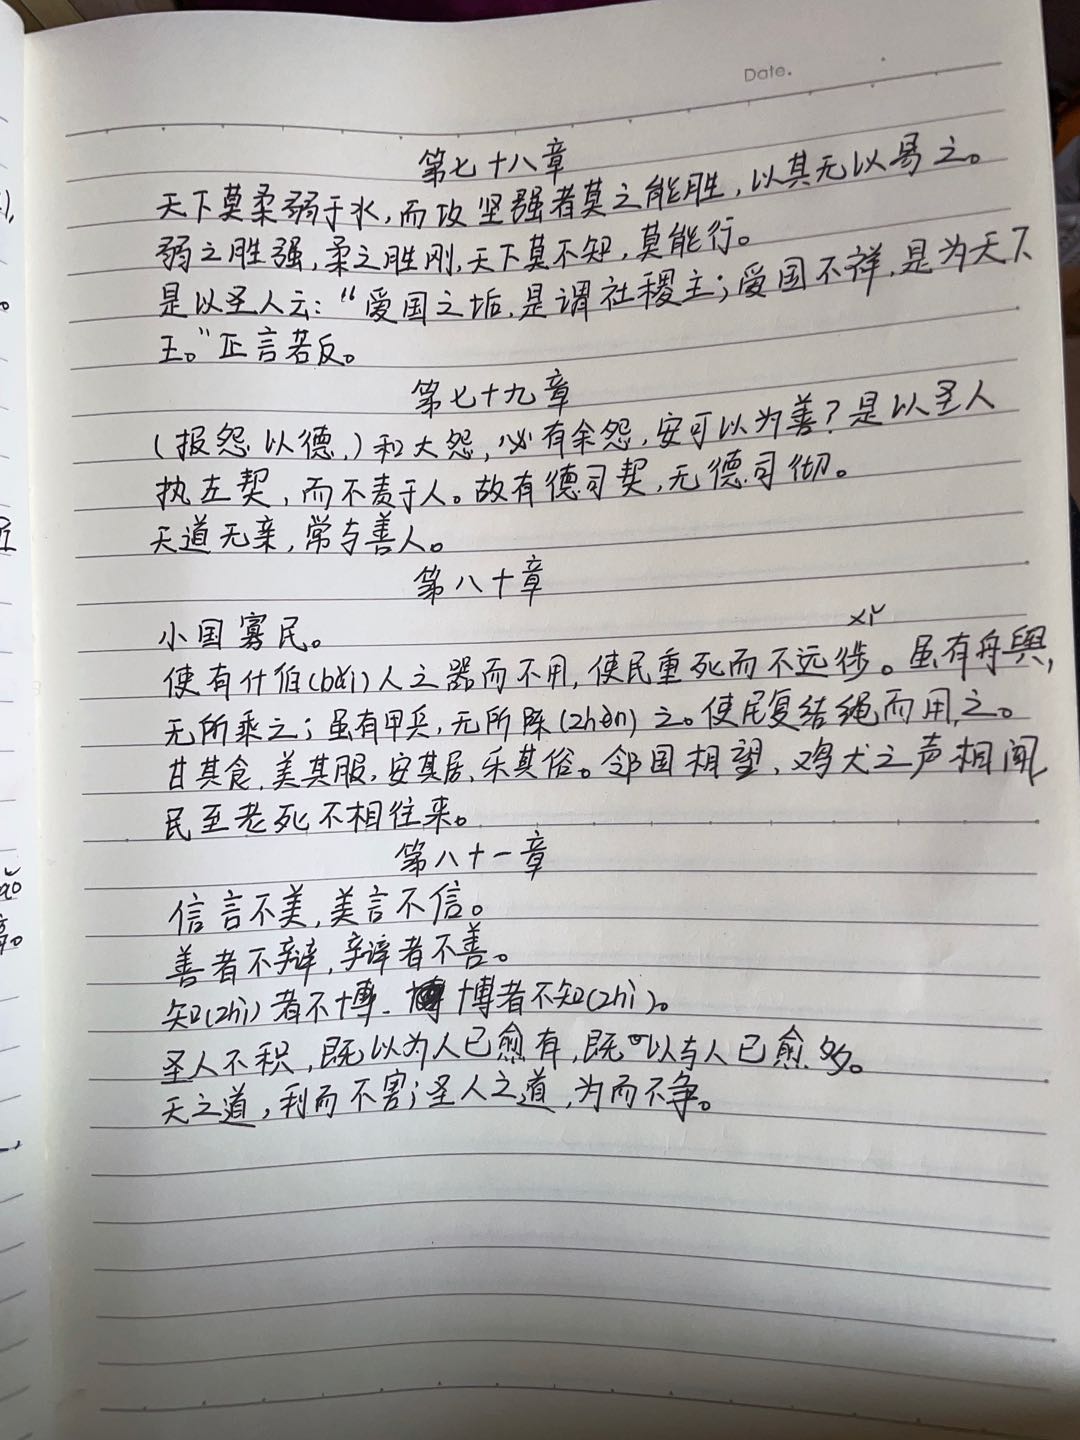 Date.
第七十八章
天下莫柔弱于水，而攻坚强者莫之能胜，以其无以易之。
弱之胜强，柔之胜刚，天下莫不知，莫能行。
是以圣人云：“爱国之垢，是谓社稷主；爱国不祥，是为天下
王。”正言若反。
第七十九章
（报怨以德，）和大怨，必有余怨，安可以为善？是以圣人
执左契，而不责于人。故有德司契，无德司彻。
天道无亲，常与善人。
第八十章
小国寡民。
xǐ
使有什伯(bǎi)人之器而不用，使民重死而不远徙。虽有舟舆，
无所乘之；虽有甲兵，无所陈(zhèn)之。使民复结绳而用之。
甘其食，美其服，安其居，乐其俗。邻国相望，鸡犬之声相闻，
民至老死不相往来。
第八十一章
信言不美，美言不信。
善者不辩，辩者不善。
知(zhì)者不博，博者不知(zhì)。
圣人不积，既以为人已愈有，既以与人已愈多。
天之道，利而不害；圣人之道，为而不争。